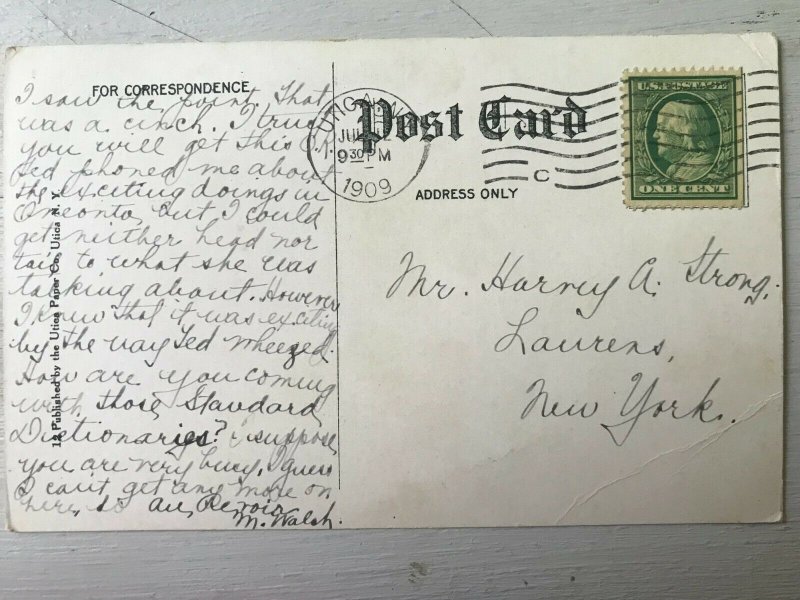 FOR CORRESPONDENCE
I saw the point. That
was a cinch. I trust
you will get this O.K.
Ted phoned me about
the exciting doings in
Oneonta, but I could
get neither head nor
tail to what she was
talking about. However
I knew that it was exciting
by the way Ted wheezed.
How are you coming
with those Standard
Dictionaries? I suppose
you are very busy, I guess
I can't get any more on
here, so au, Revoir
M. Walsh.
12 Published by the Utica Paper Co. Utica N. Y.
JUL
9 30 PM
1909
C
Post Card
ADDRESS ONLY
U.S. POSTAGE
ONE CENT
Mr. Harvey A. Strong.
Laurens,
New York.